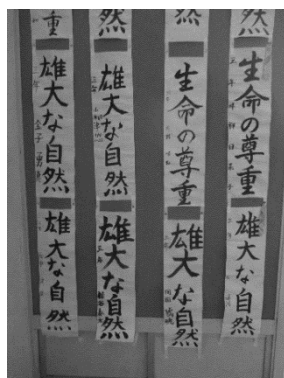 然
生命の尊重
雄大な自然
然
生命の尊重
雄大な自然
然
雄大な自然
雄大な自然
重
雄大な自然
雄大な自然